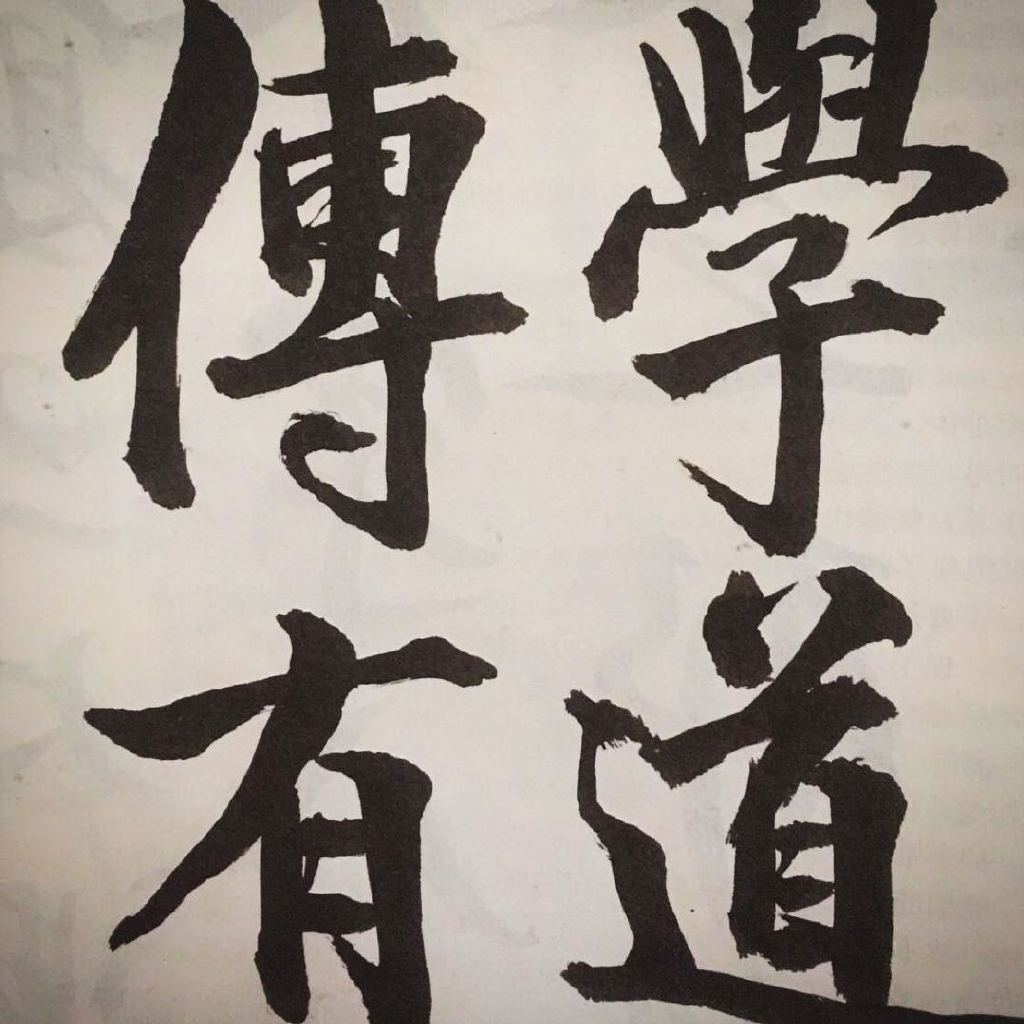 學道
傳有